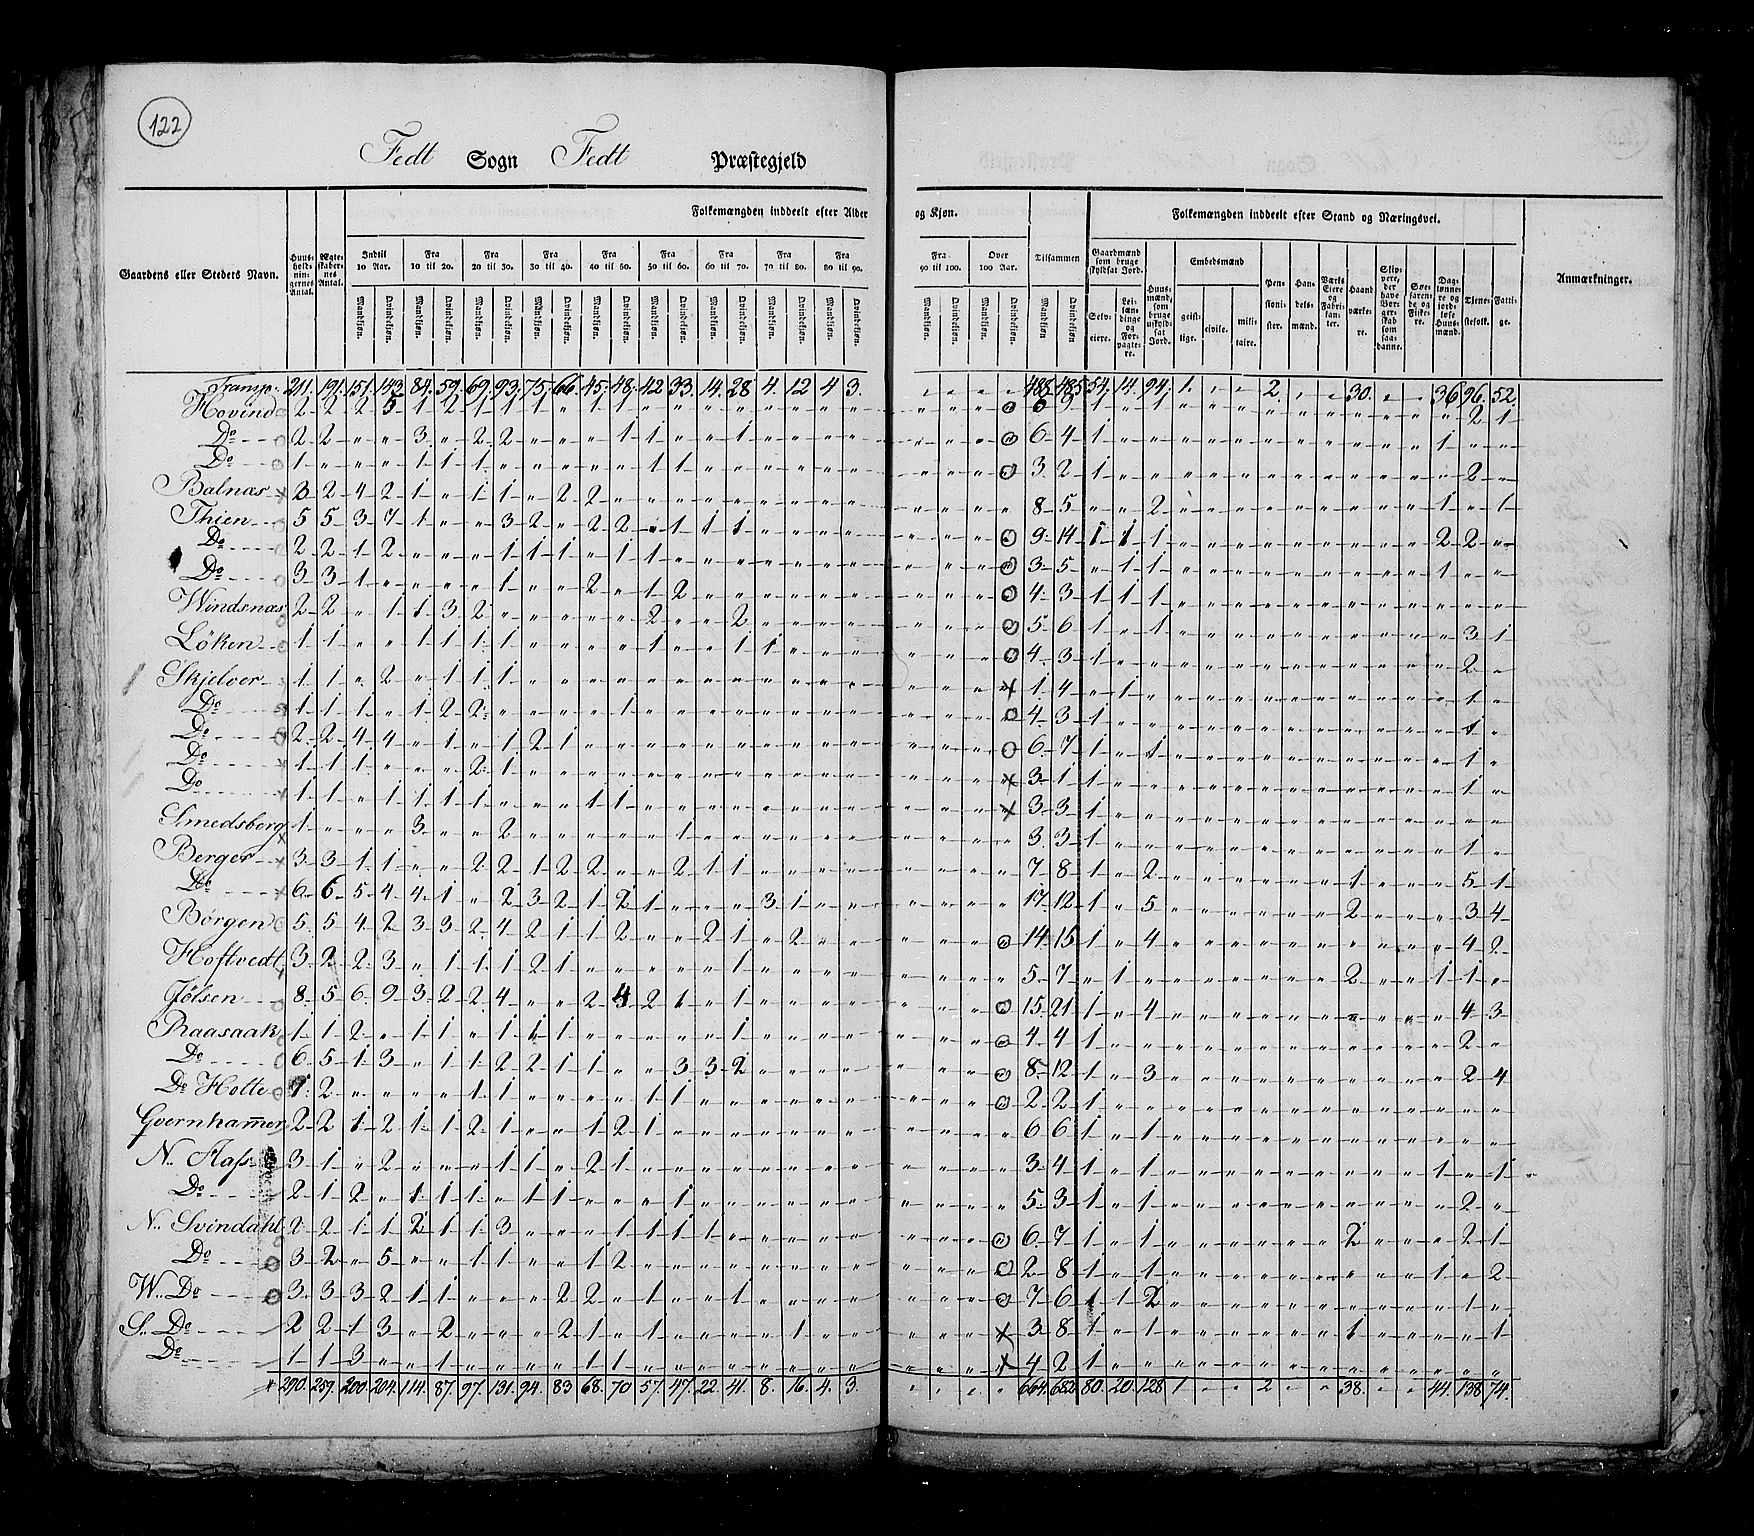 122
Fedt Sogn Fedt Præstegjeld
Gaardens eller Steders Navn.
Huus-holdnin-gernes Antal.
Ægte-skaber-nes Antal.
Folkemængden inddeelt efter Alder og Kjøn.
Indtil 10 Aar. Fra 10 til 20. Fra 20 til 30. Fra 30 til 40. Fra 40 til 50. Fra 50 til 60. Fra 60 til 70. Fra 70 til 80. Fra 80 til 90. Fra 90 til 100. Over 100 Aar. Tilsammen
Mandkjøn. Qvindekjøn.
Folkemængden inddeelt efter Stand og Næringsvei.
Gaardmænd som bruge skyldsat Jord.
Selv-eiere.
Lei-læn-dinge og For-pagte-re.
Huus-mænd, som bruge uskyld-sat Jord.
Embedsmænd
geist-lige. civile. mili-taire.
Pen-sioni-ster.
Han-dels-mænd.
Værks Eiere og Fabri-kan-ter.
Haand værke-re.
Søe-farende og Fiske-re.
Dag-lønne-re og jordløse Huus-mænd.
Tjene-stefolk.
Fatti-ge.
Anmærkninger.
Transp. 211. 191. 151. 143. 84. 59. 69. 93. 75. 66. 45. 48. 42 33. 14. 28 4. 12 4 3. 488. 485. 54. 14. 94. 1. 2. 30. 36 96. 52.
Hovind 2 2 2 5 1 2 1 1 1 " 1 1 6 9 1 " 1 2 1
Do 2 2 " " 3 " 2 2 " " " 1 1 " " 1 6 4 1 1
Do 1 " " " 1 1 1 " " " " " 1 1 3 2 1 2
Balnæs 3 2 4 2 1 " 1 1 " 2 2 8 5 " " 2 1 " 1
Thien 5 5 3 7 1 " " 3 2 " 2 2 " 1 1 1 9 14 1 1 1 2 2
Do 2 2 1 2 " " " 1 1 1 " 1 1 3 5 " 1 1 1
Do 3 3 1 " " " " 1 " " 2 " 1 2 4 3 1 1 1
Windsnæs 2 2 " 1 1 3 2 " " " " " 2 " " 2 5 6 1 " 1 3 1
Löken 1 1 " " 1 1 1 1 " " " " 1 " " 1 1 4 3 1 2
Skjelver 1 1 " 2 " 1 1 1 1 4 " 1 1
Do 1 1 1 " 1 2 2 " " " " 1 4 3 1 1
Do 2 2 4 4 " 1 " 1 2 1 6 7 1 " 1 1
Do 1 1 1 " " " 2 1 3 1 1 1
Do 1 1 " 1 1 1 1 " " " 1 1 3 3 1
Smedsberg 1 " " " 3 " " 2 " " " " " 1 3 3 1 1
Berger 3 3 1 1 " " 2 2 1 2 2 " " 2 1 1 7 8 1 " 2 1 5 1
Do 6 6 5 4 4 1 " 2 3 2 1 2 1 " " " 3 1 17 12 1 " 5 2 3 4
Börgen 5 5 4 2 3 3 2 4 2 1 1 2 " " 2 1 " 2 14 15 1 " 4 4 2
Hoftvedt 3 2 2 3 " 1 1 1 2 1 " " " " " 1 5 7 " 1 2 1 1
Jölsen 8 5 6 9 3 2 2 4 " " 2 4 2 1 " 1 15 21 1 " 4 4 3
Raasaak 1 1 2 " 1 1 " 1 1 1 " " " " " 1 4 4 1 2
Do 6 5 1 3 " 1 1 2 2 1 1 " " 3 3 2 8 12 1 " 3 2 4
Do Holte 2 " " " " 1 1 " " " " 1 1 2 2 1
Qvernhammer 2 2 1 2 1 1 2 1 " " 1 2 1 6 6 1 " 1
N. 3 1 " 2 " " " 1 1 " 2 1 3 4 1 " 1 1 " 1
Do 2 1 2 " 1 1 1 " 1 1 " " " 1 5 3 1 " 1 2
N. Svindahl 2 2 1 1 2 1 1 3 " " " 1 1 1 1 6 7 1 " 1 2 2 1
Do 3 2 " 5 " " 1 1 " " 1 2 2 8 1 " 1 1 " 2
W. Do 3 3 3 2 1 1 " " " 2 2 " 1 " " 1 7 6 1 1 2 1
S. Do 2 2 1 3 " 2 " " " 2 1 " 1 " " " " 1 3 8 1 " 1 1 1
Do 1 1 3 " " 1 " " " " 1 1 4 2 1
290. 259. 200. 204. 114. 87. 97. 131. 94. 83 68. 70 57. 47. 22. 41. 8. 16. 4. 3. 664. 682. 80. 20. 128 1 2 38. 44. 138 74.